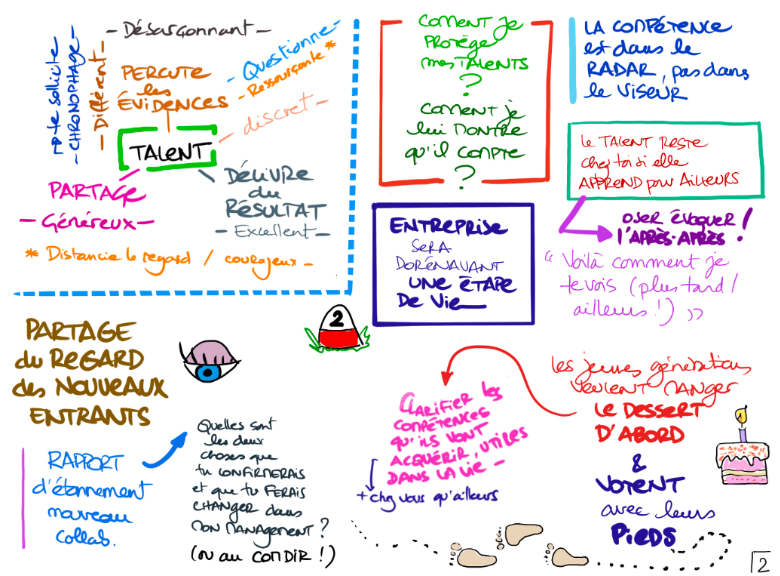 - Désarçonnant -
très sollicité
- CHRONOPHAGE -
- Différent -
PERCUTE
les
ÉVIDENCES
- Questionne -
- Ressourçante *
- discret -
TALENT
PARTAGE
- Généreux -
DÉLIVRE
du
RÉSULTAT
- Excellent -
* Distancie le regard / courageux -
COMENT je
PROTÈGE
mes TALENTS
?
COMENT je
lui MONTRE
qu'il COMPTE
?
LA COMPÉTENCE
est dans le
RADAR, pas dans
le VISEUR
le TALENT RESTE
chez toi si elle
APPREND pour AILLEURS
OSER ÉVOQUER
l'APRÈS-APRÈS !
"Voilà comment je
te vois (plus tard /
ailleurs !) »
ENTREPRISE
SERA
DORÉNAVANT
UNE ÉTAPE
De Vie
2
PARTAGE
du REGARD
des NOUVEAUX
ENTRANTS
RAPPORT
d'étonnement
nouveau
collab.
Quelles sont
les deux
choses que
tu CONFIRMERAIS
et que tu FERAIS
CHANGER dans
MON MANAGEMENT ?
(ou au COMDIR !)
CLARIFIER les
COMPÉTENCES
QU'ILS VONT
ACQUÉRIR, UTILES
DANS LA VIE -
+ chez vous qu'ailleurs
les jeunes générations
VEULENT MANGER
LE DESSERT
D'ABORD
&
VOTENT
avec leurs
PIEDS
2